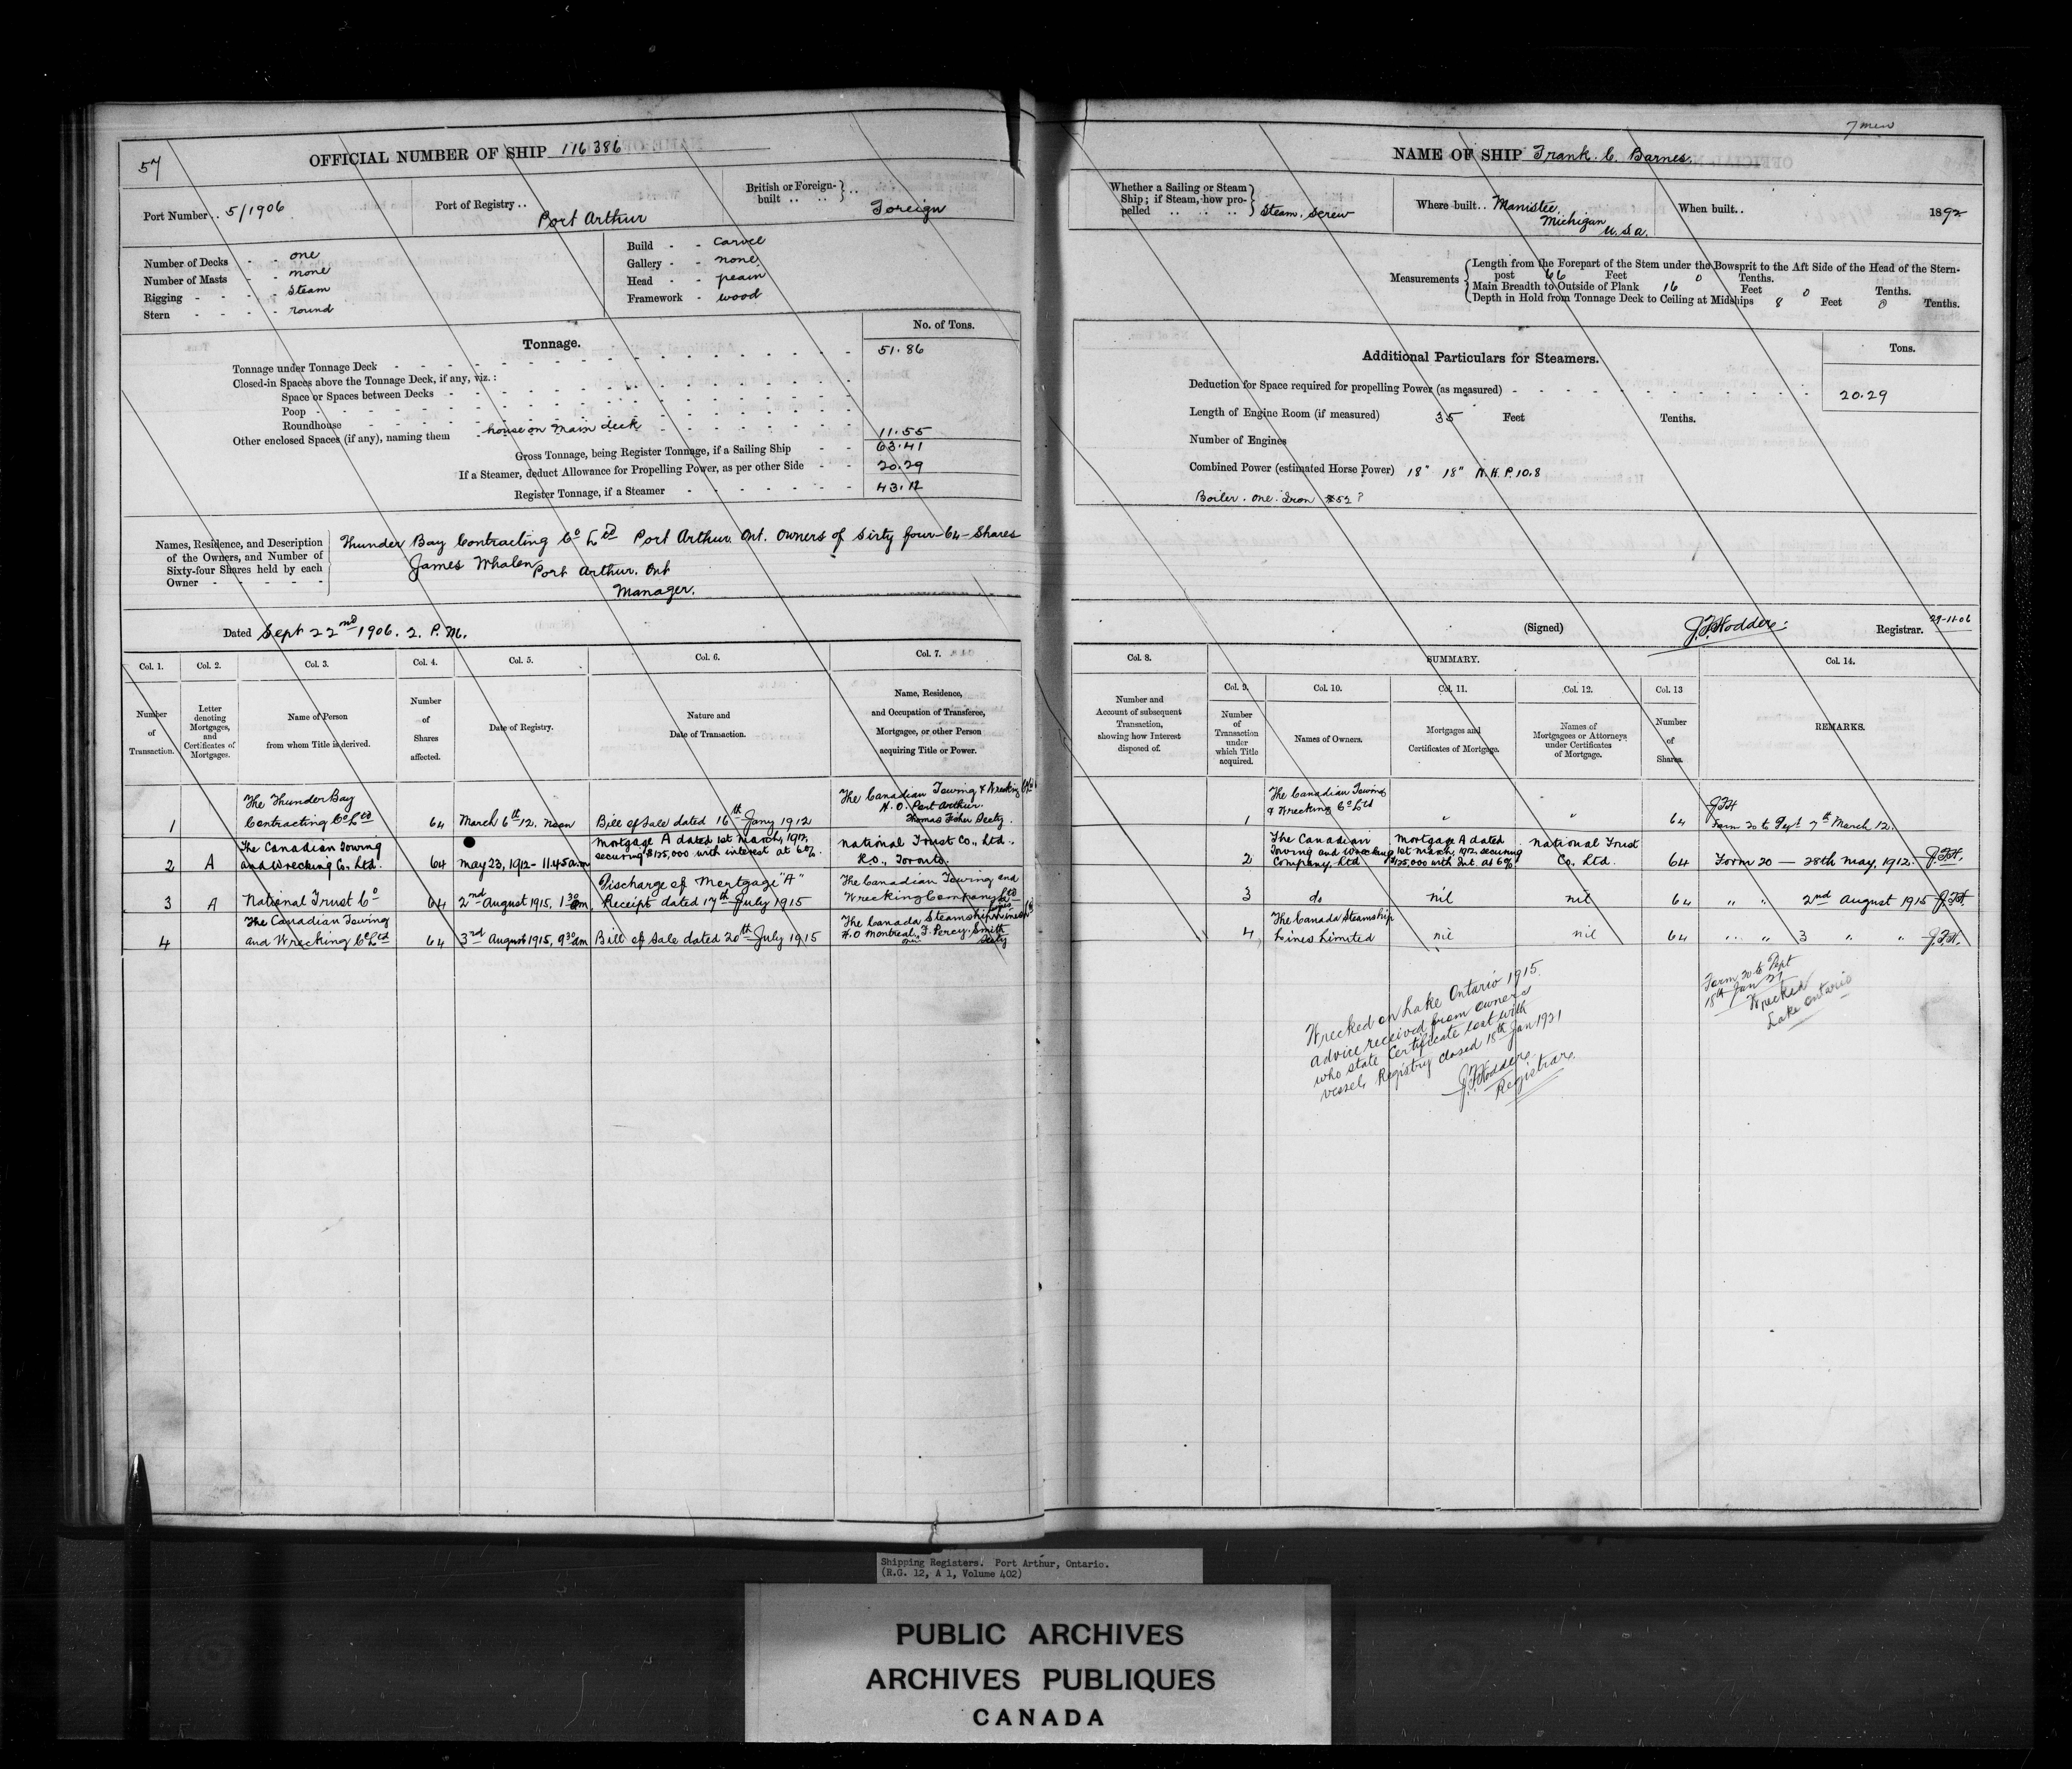 57
OFFICIAL NUMBER OF SHIP 116386
Port Number .. 5/1906
Port of Registry .. Port Arthur
British or Foreign-built .. .. } .. Foreign
Number of Decks - - one
Number of Masts - - none
Rigging - - - - Steam
Stern - - - - round
Build - - carvel
Gallery - - none
Head - - plain
Framework - wood
Tonnage.
No. of Tons.
Tonnage under Tonnage Deck 51.86
Closed-in Spaces above the Tonnage Deck, if any, viz.:
Space or Spaces between Decks
Poop
Roundhouse
Other enclosed Spaces (if any), naming them house on main deck 11.55
Gross Tonnage, being Register Tonnage, if a Sailing Ship 63.41
If a Steamer, deduct Allowance for Propelling Power, as per other Side 20.29
Register Tonnage, if a Steamer 43.12
Names, Residence, and Description
of the Owners, and Number of
Sixty-four Shares held by each
Owner
Thunder Bay Contracting Co Ltd Port Arthur. Ont. Owners of Sixty four-64-Shares
James Whalen
Port Arthur. Ont
Manager.
Dated Sept 22nd 1906. 2. P.M.
Col. 1. Col. 2. Col. 3. Col. 4. Col. 5. Col. 6. Col. 7.
Number of Transaction.
Letter denoting Mortgages, and Certificates of Mortgages.
Name of Person from whom Title is derived.
Number of Shares affected.
Date of Registry.
Nature and Date of Transaction.
Name, Residence, and Occupation of Transferee, Mortgagee, or other Person acquiring Title or Power.
1 The Thunder Bay Contracting Co Ltd 64 March 6th 12. Noon Bill of Sale dated 16th Jany 1912 The Canadian Towing & Wrecking Co Ltd H.O. Port Arthur. Thomas Fisher Secty.
2 A The Canadian Towing and Wrecking Co. Ltd. 64 May 23, 1912 - 11.45 a.m. Mortgage A dated 1st March, 1912, securing $125,000 with interest at 6%. National Trust Co., Ltd., H.O., Toronto.
3 A National Trust Co 64 2nd August 1915. 1 30 Discharge of Mortgage "A" Receipt dated 17th July 1915 The Canadian Towing and Wrecking Company Ltd
4 The Canadian Towing and Wrecking Co Ltd 64 3rd August 1915, 9 30 am Bill of Sale dated 20th July 1915 The Canada Steamship Lines H.O Montreal, F. Percy Smith Secty
7 men
NAME OF SHIP Frank C. Barnes.
Whether a Sailing or Steam
Ship; if Steam, how pro-
pelled .. .. .. } Steam. Screw
Where built .. Manistee, Michigan U.S.A.
When built .. 1892
Measurements
Length from the Forepart of the Stem under the Bowsprit to the Aft Side of the Head of the Stern-
post 66 Feet 0 Tenths.
Main Breadth to Outside of Plank 16 Feet 0 Tenths.
Depth in Hold from Tonnage Deck to Ceiling at Midships 8 Feet 0 Tenths.
Additional Particulars for Steamers.
Tons.
Deduction for Space required for propelling Power (as measured) 20.29
Length of Engine Room (if measured) 35 Feet Tenths.
Number of Engines
Combined Power (estimated Horse Power) 18" 18" N.H.P. 10.8
Boiler. One. Iron
(Signed) J.F. Hodder Registrar. 29-11-06
Col. 8. SUMMARY. Col. 14.
Col. 9. Col. 10. Col. 11. Col. 12. Col. 13
Number and Account of subsequent Transaction, showing how Interest disposed of.
Number of Transaction under which Title acquired.
Names of Owners.
Mortgages and Certificates of Mortgage.
Names of Mortgagees or Attorneys under Certificates of Mortgage.
Number of Shares.
REMARKS.
1 The Canadian Towing & Wrecking Co Ltd " " 64 J.F.H Form 20 to Dept 7th March 12.
2 The Canadian Towing and Wrecking Company, Ltd Mortgage A dated 1st March, 1912. securing $125,000 with Int. at 6% National Trust Co., Ltd. 64 Form 20 — 28th May, 1912. J.F.H.
3 do nil nil 64 " " 2nd August 1915 J.F.H.
4 The Canada Steamship Lines Limited nil nil 64 " " 3 " " J.F.H.
Wrecked on Lake Ontario 1915.
advice received from owners
who state Certificate lost with
vessel, Registry closed 18th Jan 1921
J.F. Hodder.
Registrar.
Form 20 to Dept
18th Jan 21
Wrecked
Lake Ontario
Shipping Registers. Port Arthur, Ontario.
(R.G. 12, A 1, Volume 402)
PUBLIC ARCHIVES
ARCHIVES PUBLIQUES
CANADA